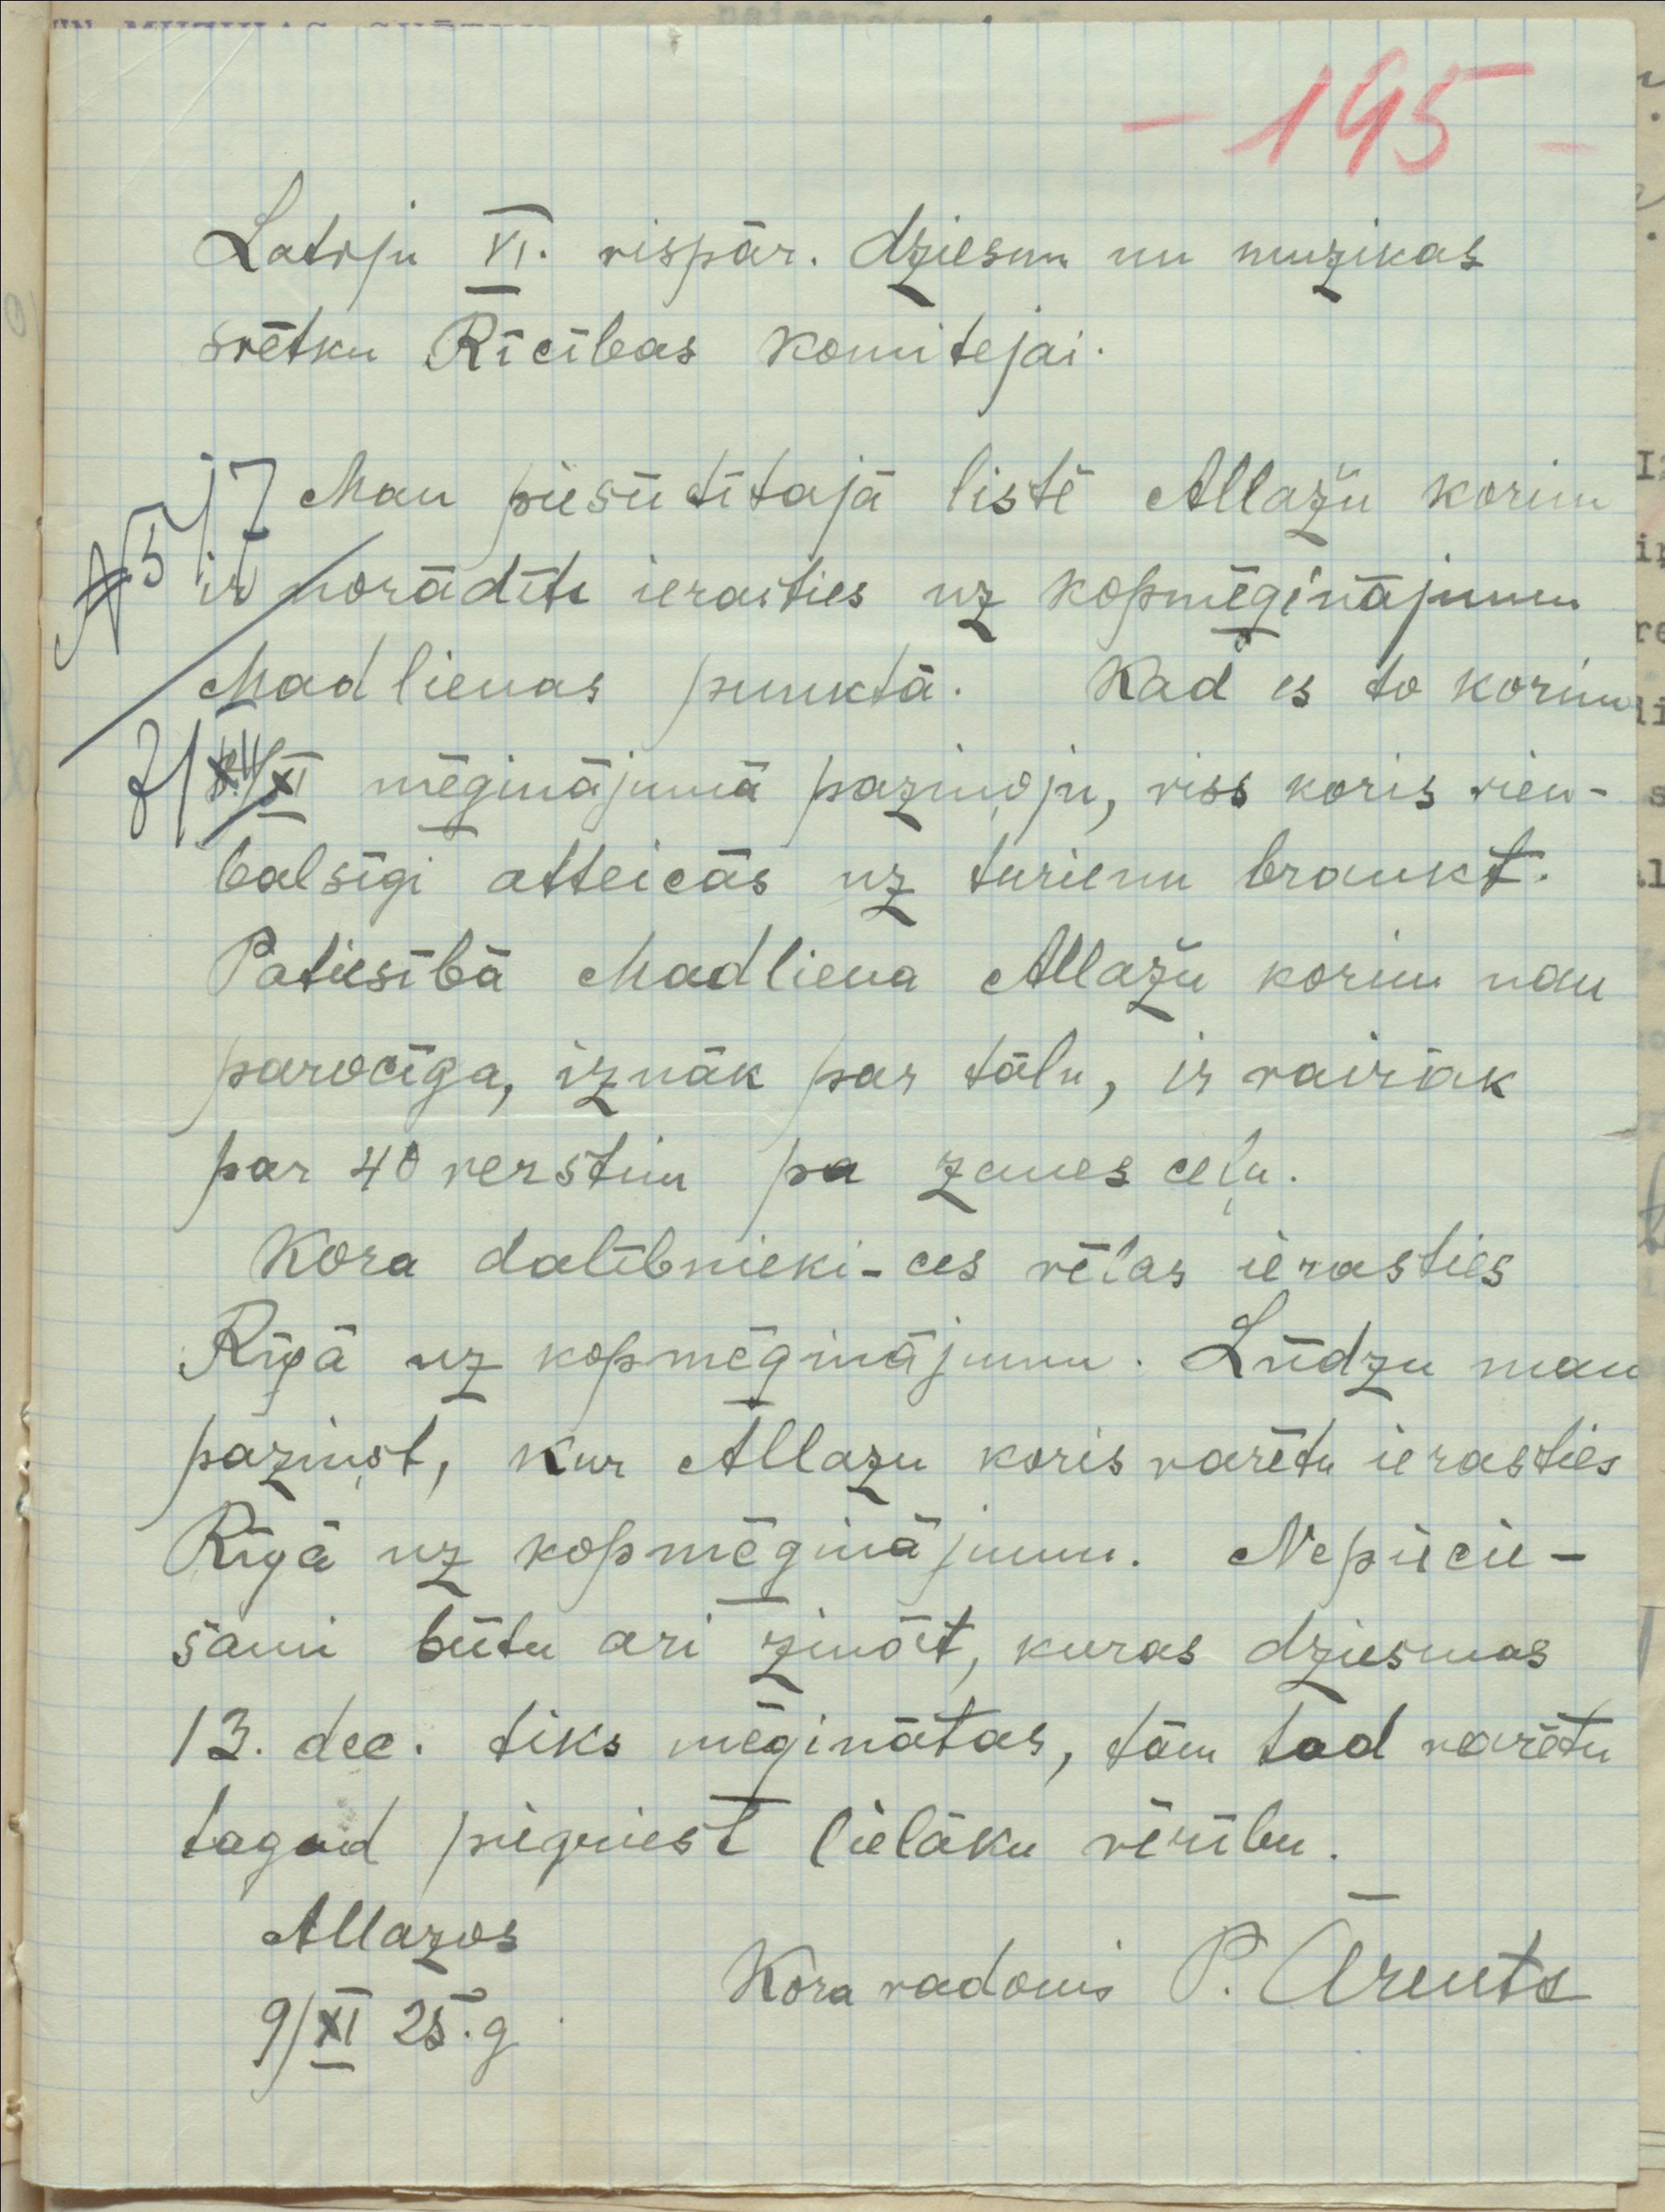 - 195 -
Latvju VI. vispār. dziesmu un muzikas
svētku Rīcības komitejai.
Man piesūtītajā listē Allažu korim
ir norādīts ierasties uz kopmēģinājumu
Madlienas punktā. Kad es to korim
XI mēģinājumā paziņoju, viss koris vien-
balsīgi atteicās uz turieni braukt.
Patiesībā Madliena Allažu korim nau
parocīga, iznāk par tālu, ir vairāk
par 40 verstīm pa zemes ceļu.
Kora dalībnieki-ces vēlas ierasties
Rīgā uz kopmēģinājumu. Lūdzu man
paziņot, kur Allažu koris varētu ierasties
Rīgā uz kopmēģinājumu. Nepiecie-
šami būtu ari zināt, kuras dziesmas
13. dec. tiks mēģinātas, tām tad varētu
tagad piegriest lielāku vērību.
Allažos
9/XI 25.g.
Kora vadonis P. Ārents